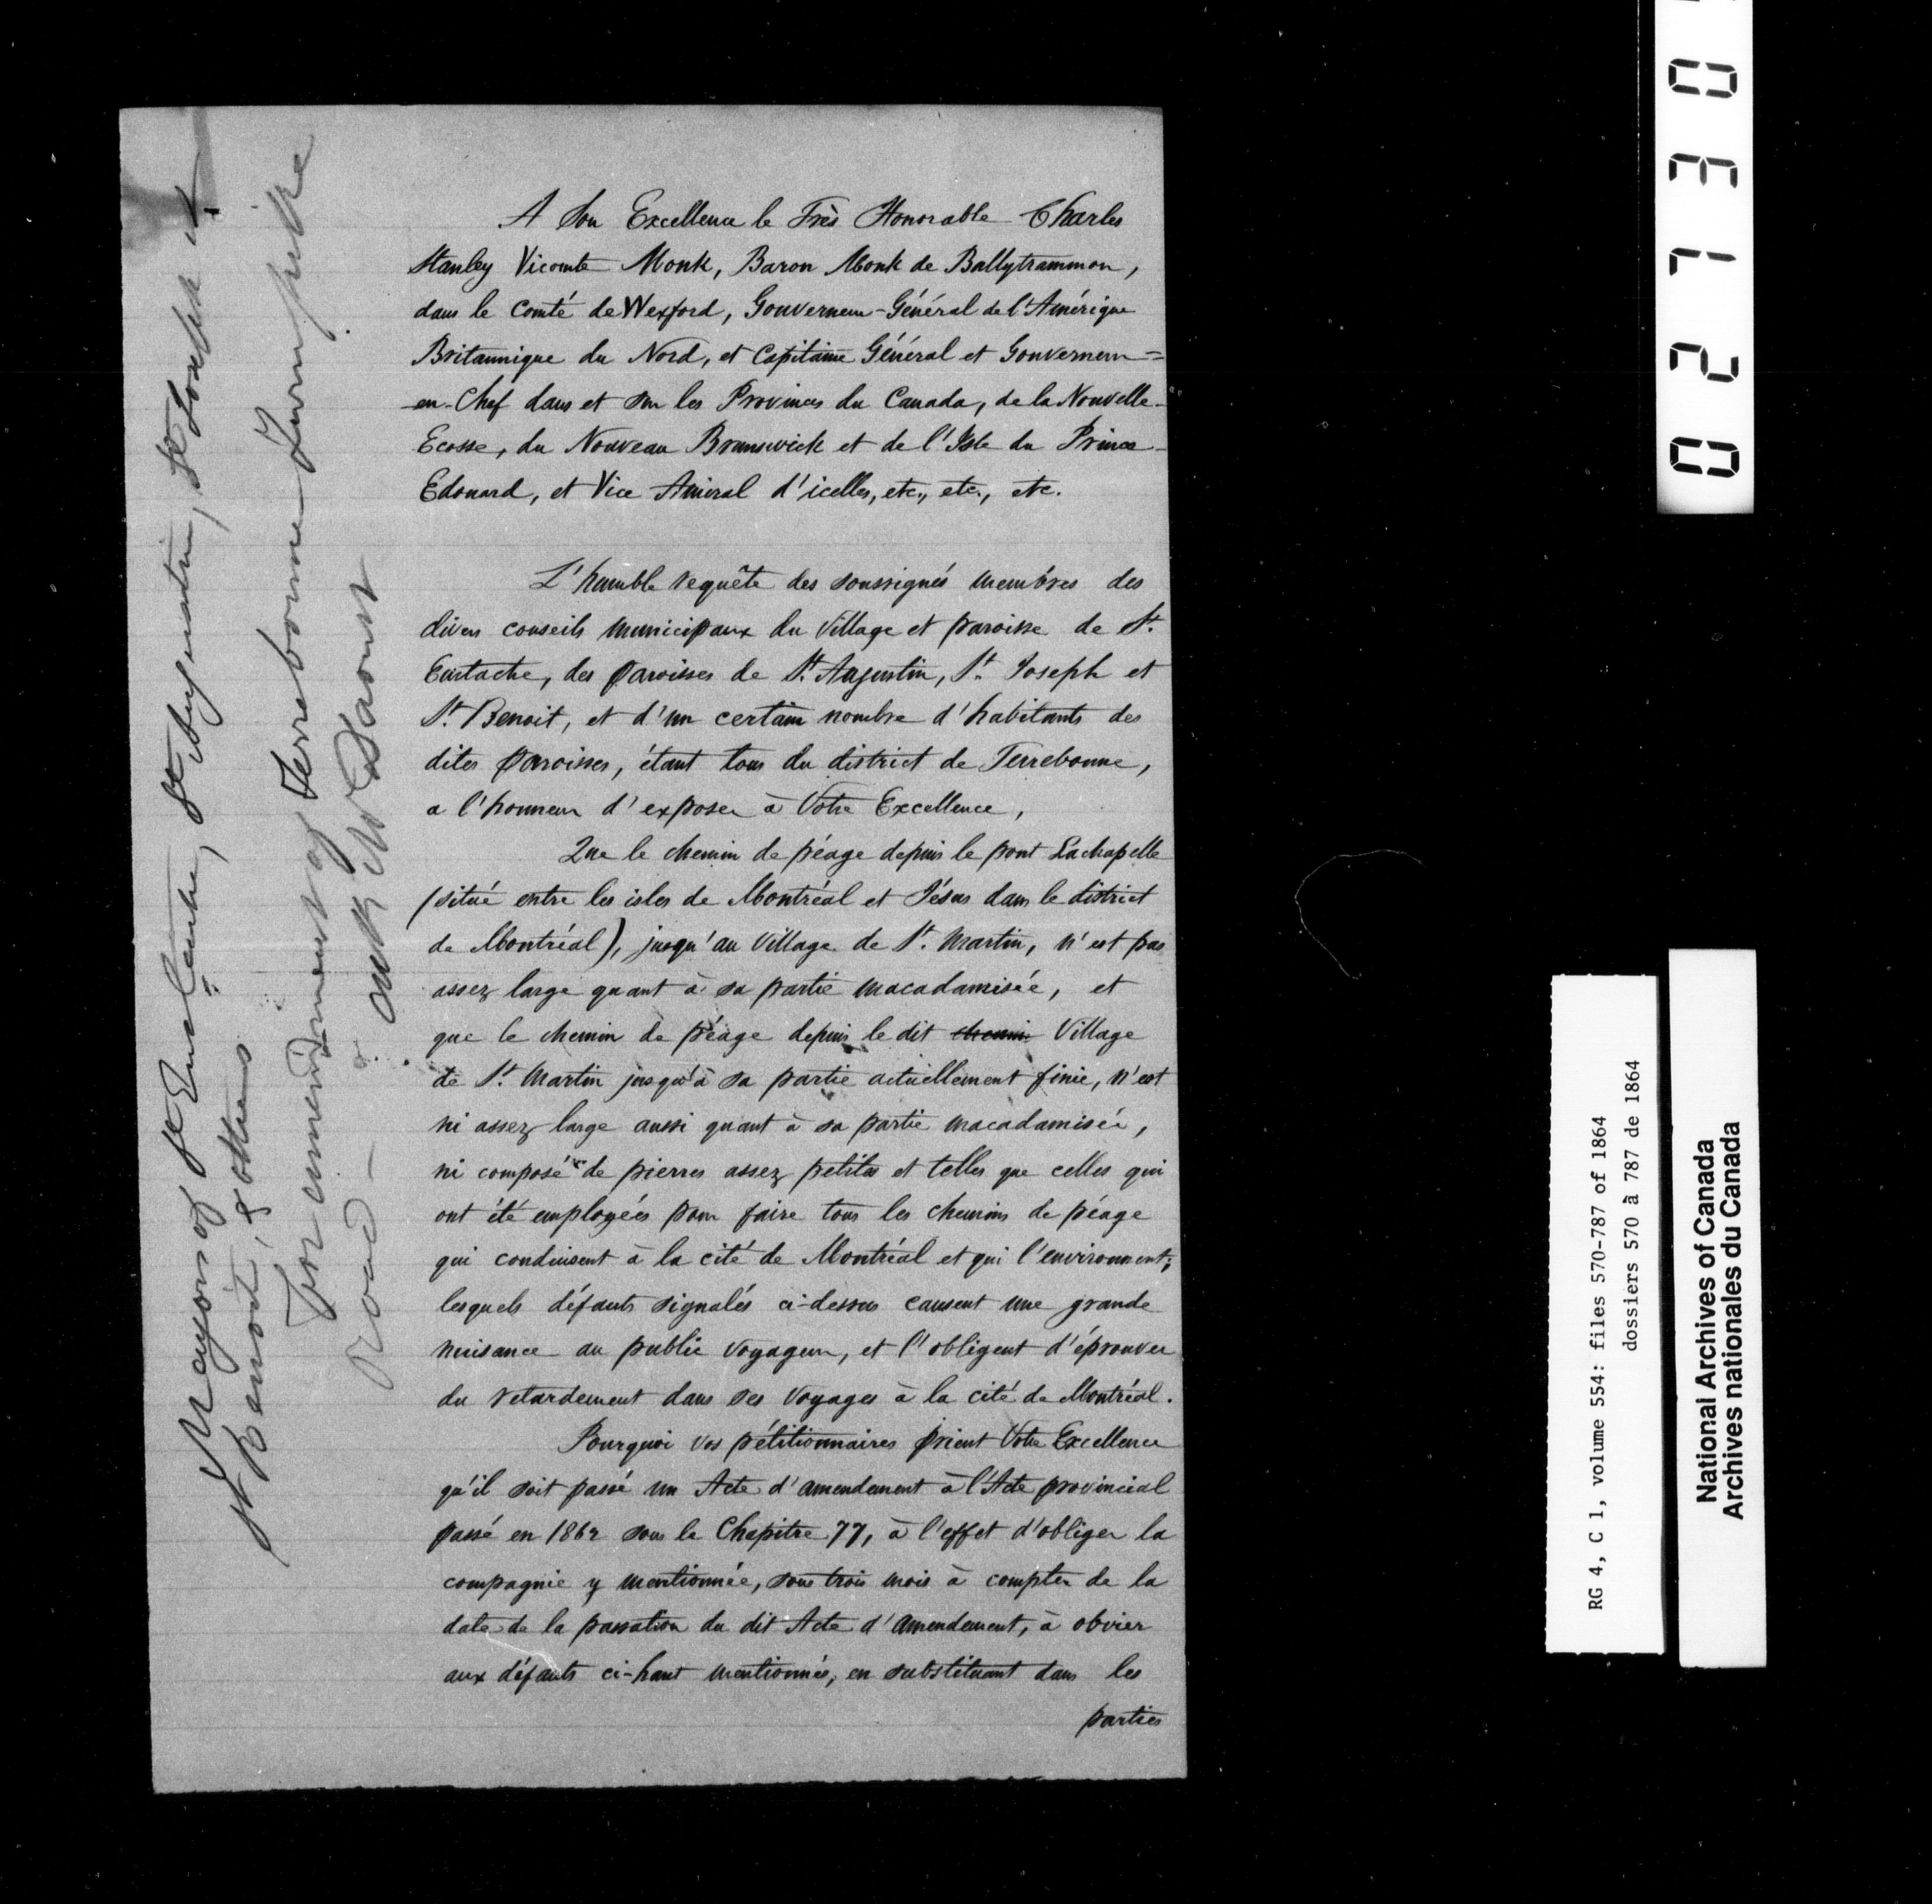 A Son Excellence le Très Honorable Charles
Stanley Vicomte Monk, Baron Monk de Ballytrammon,
dans le Comté de Wexford, Gouverneur-Général de l'Amérique
Britannique du Nord, et Capitaine Général et Gouverneur=
en-Chef dans et sur les Provinces du Canada, de la Nouvelle-
Ecosse, du Nouveau Brunswick et de l'Isle du Prince-
Edouard, et Vice Amiral d'icelles, etc., etc., etc.
L'humble requête des soussignés membres des
divers conseils municipaux du Village et paroisse de St.
Eustache, des paroisses de St. Augustin, St. Joseph et
St. Benoit, et d'un certain nombre d'habitants des
dites paroisses, étant tous du district de Terrebonne,
a l'honneur d'exposer à Votre Excellence,
Que le chemin de péage depuis le pont Lachapelle
(situé entre les isles de Montréal et Jésus dans le district
de Montréal), jusqu'au Village de St. Martin, n'est pas
assez large quant à sa partie macadamisée, et
que le chemin de péage depuis le dit chemin Village
de St. Martin jusqu'à sa partie actuellement finie, n'est
ni assez large aussi quant à sa partie macadamisée,
ni composée de pierres assez petites et telles que celles qui
ont été employées pour faire tous les chemins de péage
qui conduisent à la cité de Montréal et qui l'environnent;
lesquels défauts signalés ci-dessus causent une grande
nuisance au public voyageur, et l'obligent d'éprouver
du retardement dans ses voyages à la cité de Montréal.
Pourquoi vos pétitionnaires prient Votre Excellence
qu'il soit passé un Acte d'amendement à l'Acte provincial
passé en 1862 sous le Chapitre 77, à l'effet d'obliger la
compagnie y mentionnée, sous trois mois à compter de la
date de la passation du dit Acte d'amendement, à obvier
aux défauts ci-haut mentionnés, en substituant dans les
parties
Mayors of St Eustache, St Augustin, St Joseph &
St Benoit, & others
For amendment of Terrebonne Turnpike
Road—
02730
RG 4, C 1, volume 554: files 570-787 of 1864
dossiers 570 à 787 de 1864
National Archives of Canada
Archives nationales du Canada